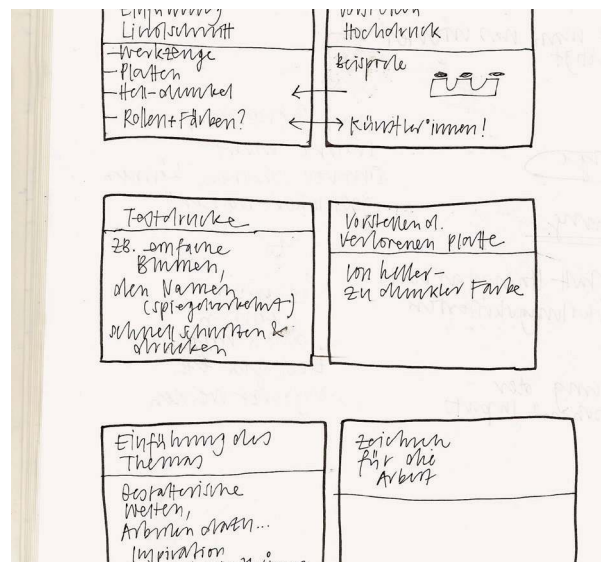 Einführung
Linolschnitt
- Werkzeuge
- Platten
- Hell-dunkel
- Rollen+Färben?
Vorstellen
Hochdruck
Beispiele
Künstler*innen!
Testdrucke
zB. einfache
Blumen,
den Namen
(spiegelverkehrt)
schnell schnitzen &
drucken
Vorstellen d.
verlorenen Platte
von heller-
zu dunkler Farbe
Einführung des
Themas
Gestalterische
Welten,
Arbeiten dazu...
Inspiration
Zeichnen
für die
Arbeit